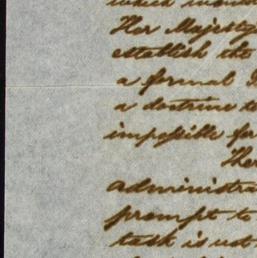 Her Majesty
establish the
a formal
a doctrine
impossible for
administra
prompt to
task is not